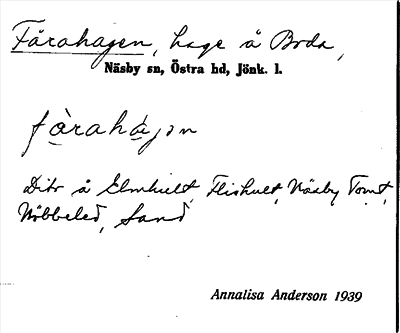 Fårahagen, hage å Boda,
Näsby sn, Östra hd, Jönk. l.
fàrahàgən
Dito å Elmhult, Flishult, Näsby Tomt,
Nöbbeled, Sand
Annalisa Anderson 1939